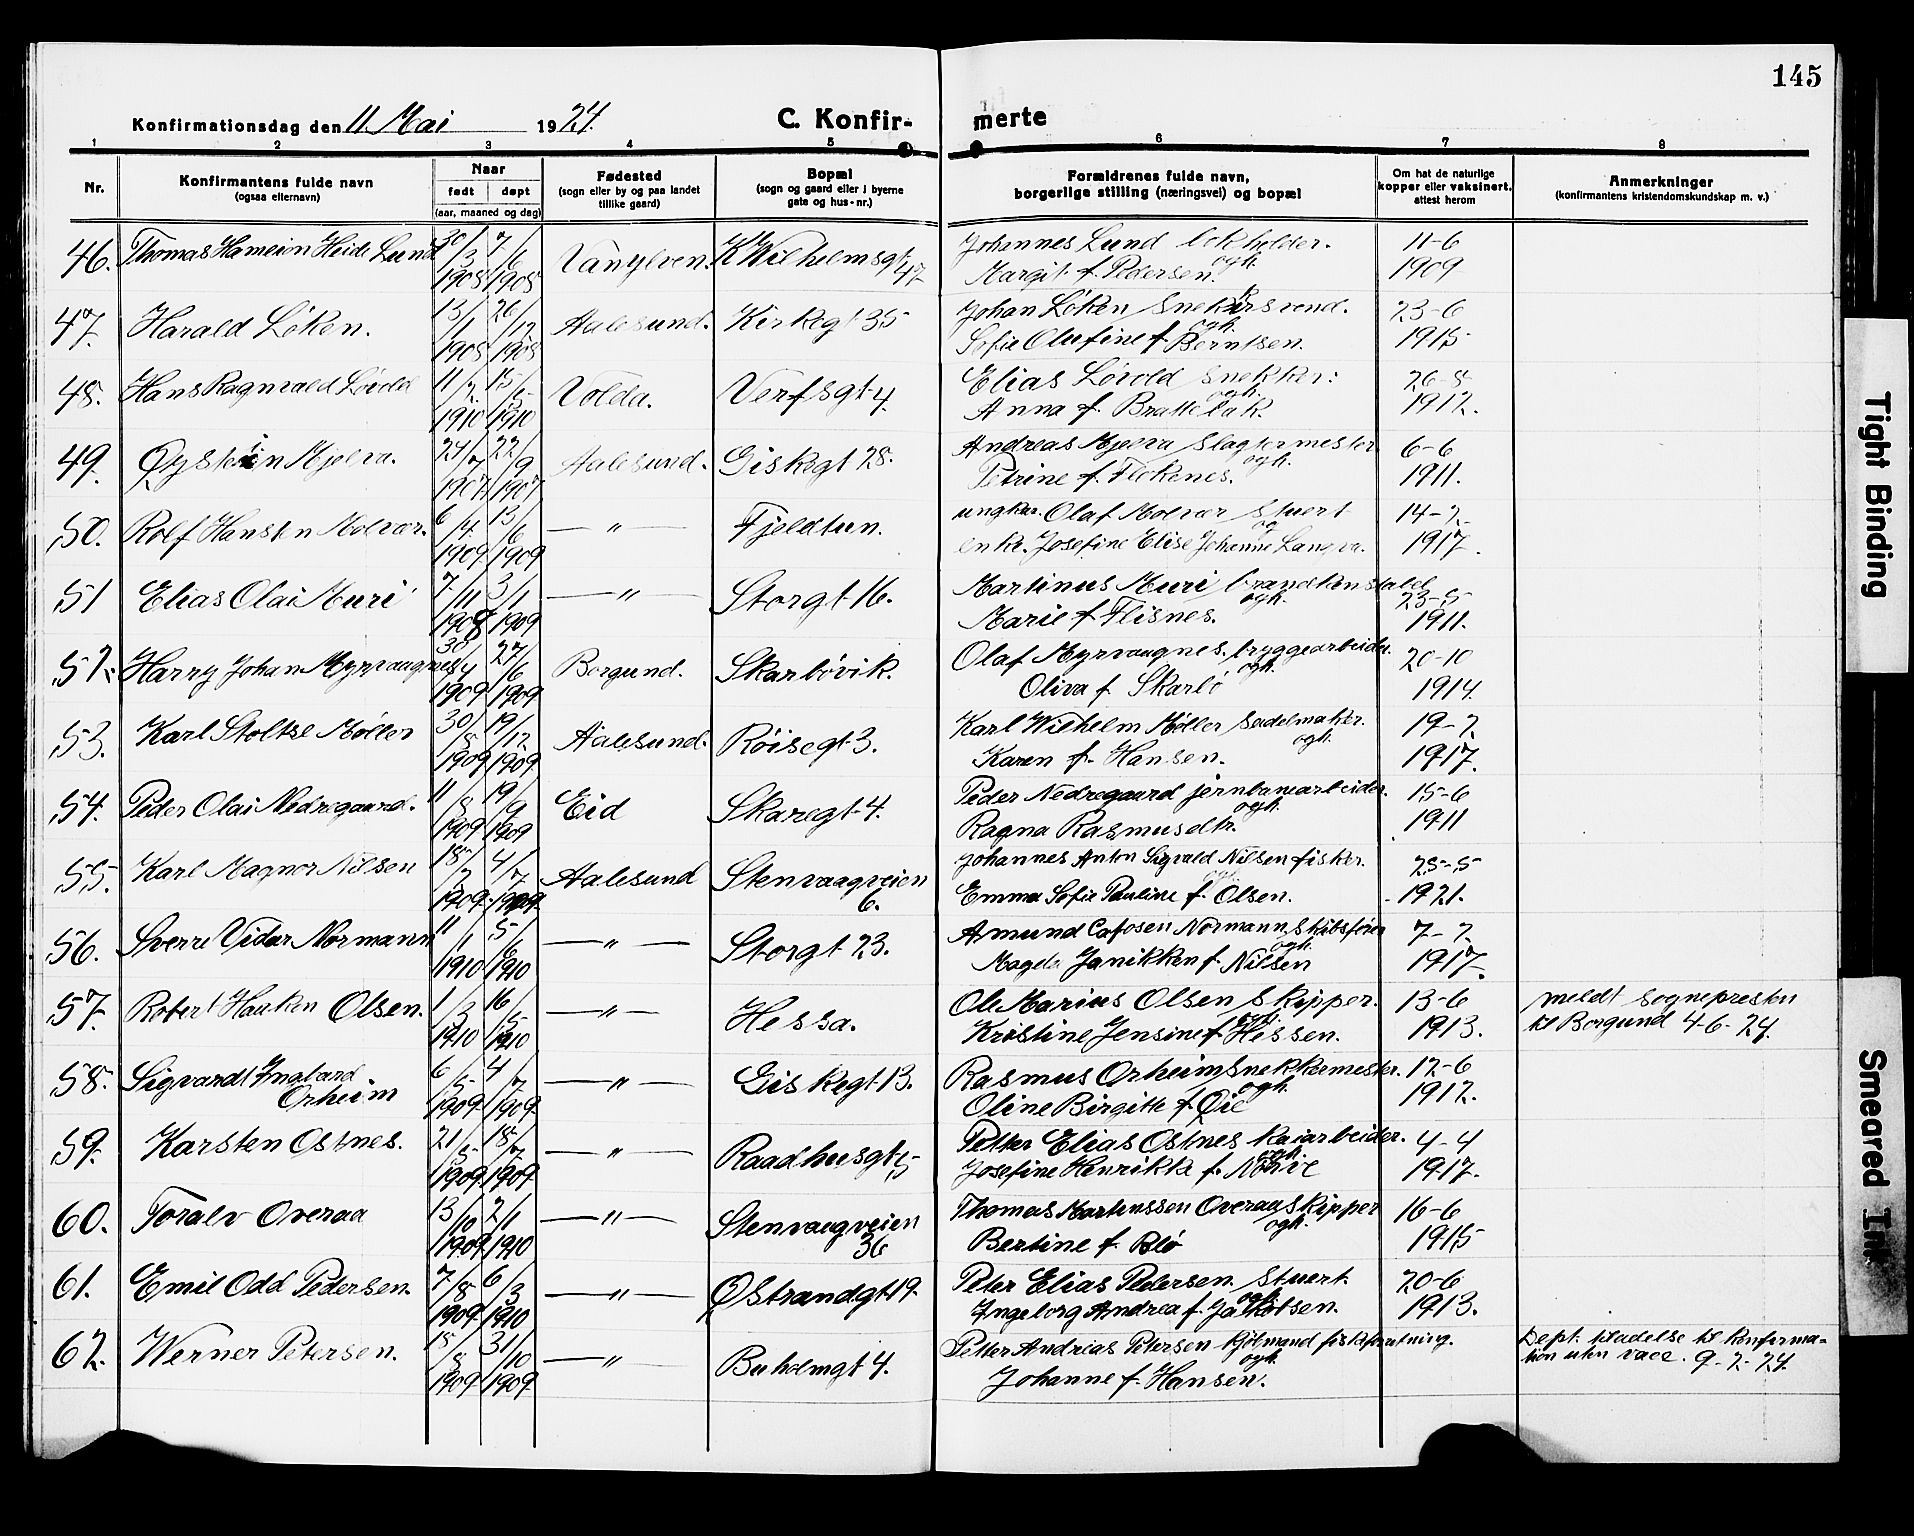 145
Konfirmationsdag den 11. Mai 1924.
C. Konfirmerte
1 2 3 4 5 6 7 8
Nr.
Konfirmantens fulde navn
(ogsaa efternavn)
Naar
født døpt
(aar, maaned og dag)
Fødested
(sogn eller by og paa landet
tillike gaard)
Bopæl
(sogn og gaard eller i byerne
gate og hus-nr.)
Forældrenes fulde navn,
borgerlige stilling (næringsvei) og bopæl
Om hat de naturlige
kopper eller vaksinert,
attest herom
Anmerkninger
(konfirmantens kristendomskundskap m. v.)
46. Thomas Heide Lund 30/3 1908 7/6 1908 Vanylven. K Wilhelmsgt 47 Johannes Lund bokholder. 11-6
ogh. Margit f. Pedersen. 1909
47. Harald Löken. 13/1 1905 26/12 1905 Aalesund. Kirkegt 35 Johan Löken Snekkersvend. 23-6
ogh. Sofie Olufine f. Berntsen. 1915
48. Hans Ragnvald Lövold 11/2 1910 15/5 1910 Volda. Verfsgt 4. Elias Lövold Snekker. 26-8
ogh. Anna f. Brattebak. 1912.
49. Øystein Mjelva. 24/7 1907 22/9 1907 Aalesund. Giskegt 28. Andreas Mjelva Slagtermester 6-6
ogh. Petrine f. Flekenes. 1911.
50. Rolf Hansten Molvær. 6/4 1909 13/6 1909 — " — Fjeldtun. ungkar. Olaf Molvær Stuert 14-2
og enke. Josefine Elise Johanne Langva. 1917.
51 Elias Olai Muri 7/11 1908 3/1 1909 — " — Storgt 16. Martinus Muri brandkonstabel 23-5
ogh. Marie f. Flisnes. 1911.
52. Harry Johan Myrvaagnes 30/4 1909 27/6 1909 Borgund. Skarbövik. Olaf Myrvaagnes. bryggearbeider. 20-10
ogh. Oliva f. Skarbö 1914
53. Karl Stoltse Möller 30/8 1909 19/12 1909 Aalesund. Röisegt 3. Karl Wilhelm Möller Sadelmaker. 19-2
ogh. Karen f. Hansen. 1917.
54. Peder Olai Nedregaard. 11/8 1909 19/9 1909 Eid Skaregt 4. Peder Nedregaard jernbanearbeider. 15-6
ogh. Ragna Rasmusdtr. 1911
55. Karl Magnor Nilsen 18/2 1909 4/7 1909. Aalesund Stenvaagveien 6. Johannes Anton Sigvald Nilsen fisker. 25-5
ogh. Emma Sofie Pauline f. Olsen. 1921.
56. Sverre Vidar Normann 11/1 1910 5/6 1910 — " — Storgt 23. Amund Normann, Skibsfører 7-2
ogh. Magda Janikken f. Nilsen 1917.
57. Robert Hauken Olsen. 1/3 1910 16/5 1910 — " — Hessa. Ole Marius Olsen Skipper. 13-6 meldt sognepresten
ogh. Kristine Jensine f. Hessen. 1913. til Borgund 4-6-24.
58. Sigvardt Ingvard Orheim 6/5 1909 4/7 1909. — " — Giskegt 13. Rasmus Orheim, Snekkermester. 12-6
ogh. Oline Birgitte f. Øie 1912.
59. Karsten Ostnes. 21/5 1909 18/7 1909 — " — Raadhusgt 5 Petter Elias Ostnes kaiarbeider. 4-4
ogh. Josefine Henrikka f. 1917.
60. Toralv Overaa 13/10 1909 2/1 1910 — " — Stenvaagveien 36 Thomas Martinussen Overaa, Skipper 16-6
ogh. Bertine f. Blö 1915
61. Emil Odd Pedersen. 7/8 1909. 6/3 1910 — " — Østrandgt 19. Peter Elias Pedersen. Stuert. 20-6
ogh. Ingeborg Andrea f. Jakobsen. 1913.
62. Werner Petersen. 15/8 1909 31/10 1909 — " Buholmgt 4. Petter Andreas Petersen kjöbmand fiskforretning. Dept. tiladelse til konfirma-
ogh. Johanne f. Hansen. tion uten vacc. 9-2-24.
Tight Binding
Smeared Ink